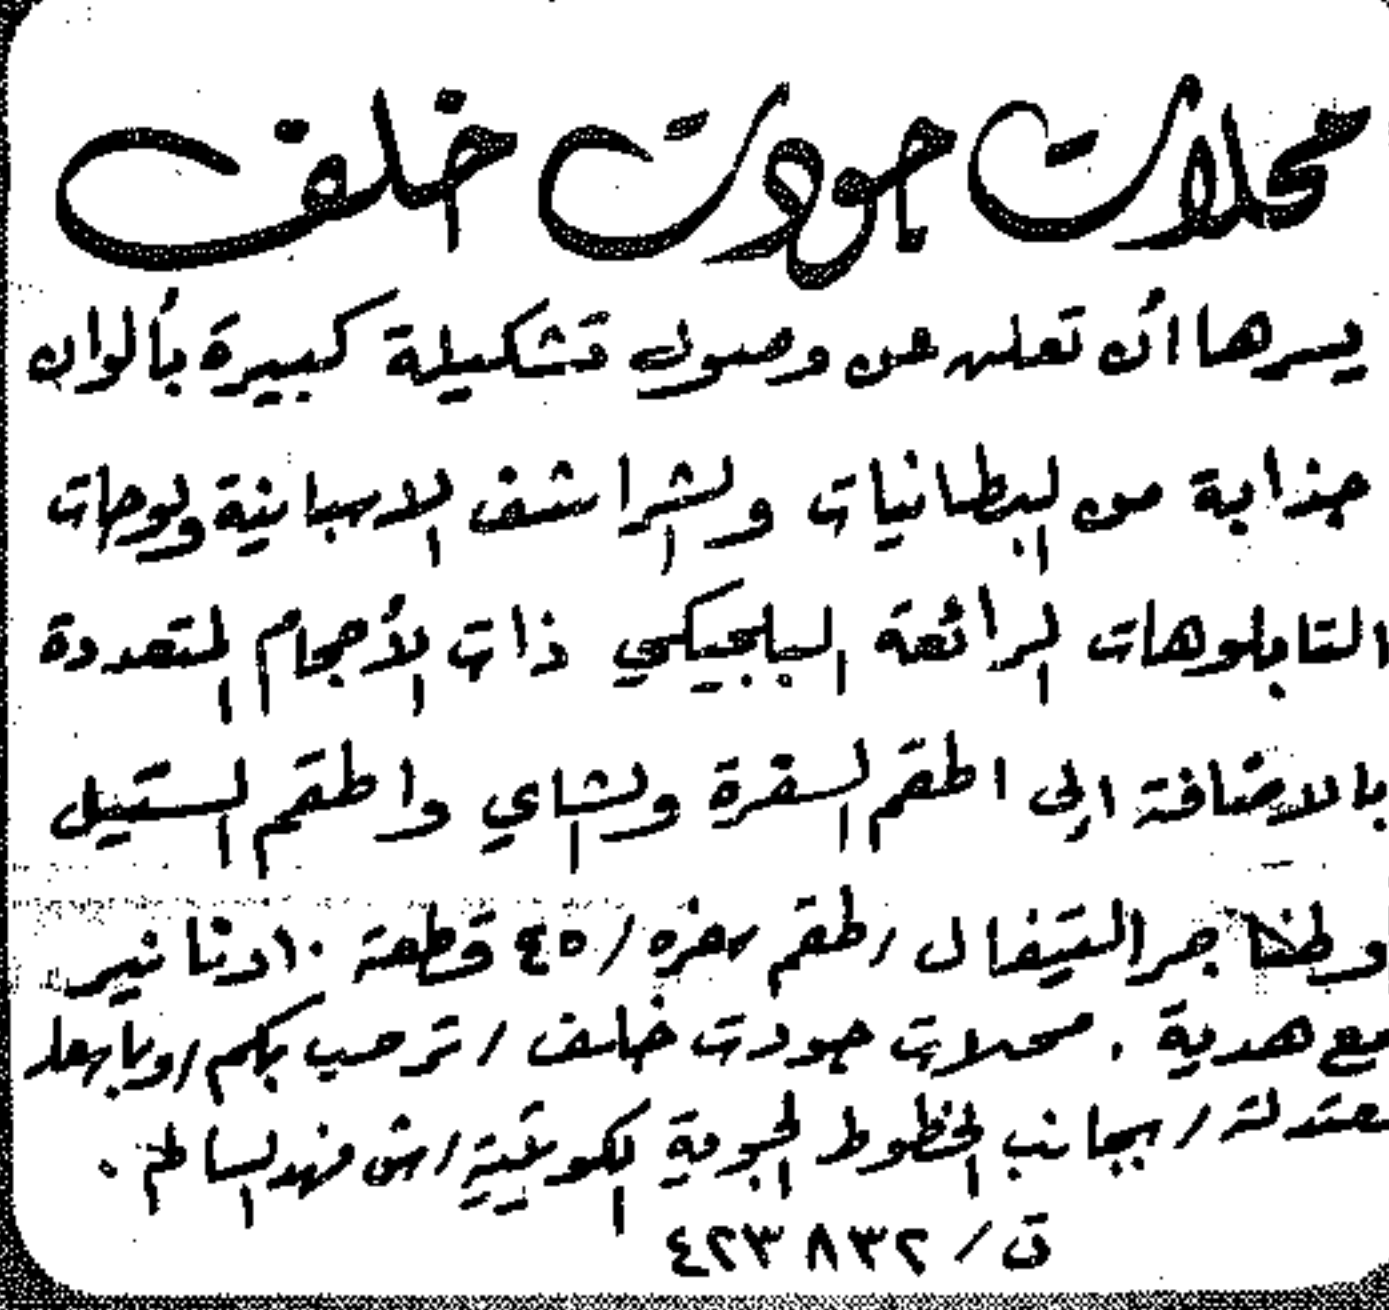 محلات جودت خلف
يسرها ان تعلن عن وصول تشكيلة كبيرة بألوان
جذابة من البطانيات والشراشف الاسبانية ولوحات
التابلوهات الرائعة البلجيكي ذات الأحجام المتعددة
بالاضافة الى اطقم السفرة والشاي واطقم الستيل
وطناجر التيفال / طقم سفره / ٤٥ قطعة ١٠ دنانير
مع هدية . محلات جودت خلف / ترحب بكم / وبأسعار
معتدلة / بجانب الخطوط الجوية الكويتية / ش فهد السالم .
ت / ٤٢٣٨٣٢